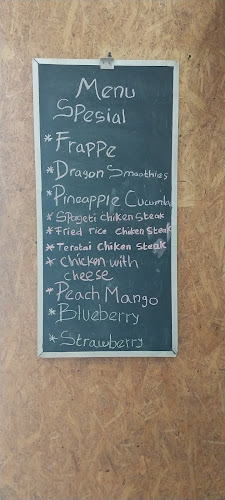 Menu
SPesial
* Frappe
* Dragon Smoothies
* Pineapple Cucumber
* SPageti chiken steak
* Fried rice chiken steak
* Terotai chiken steak
* chicken with
cheese
* Peach Mango
* Blueberry
* Strawberry